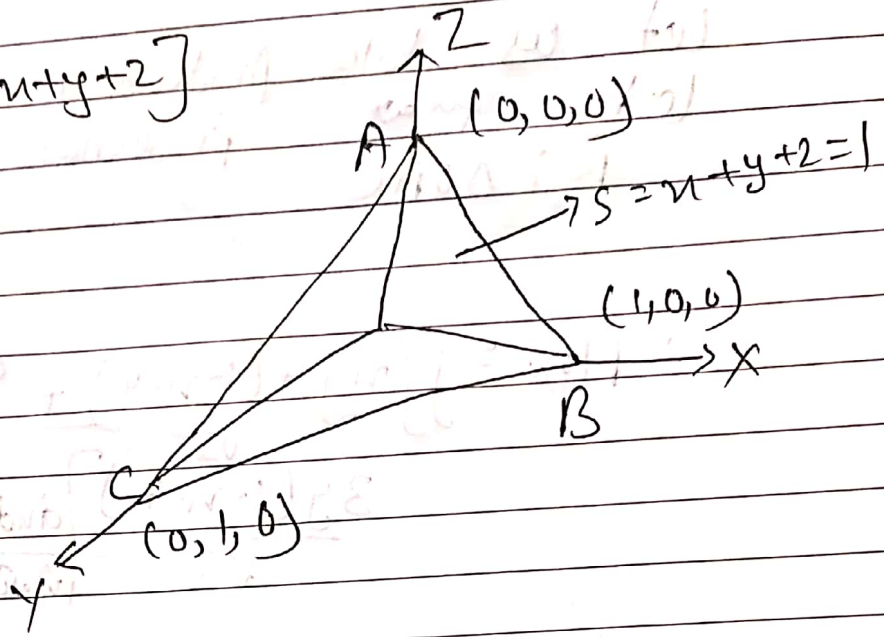 x+y+z]
Z
A (0,0,0)
S = x+y+z=1
(1,0,0)
X
B
C
(0,1,0)
Y